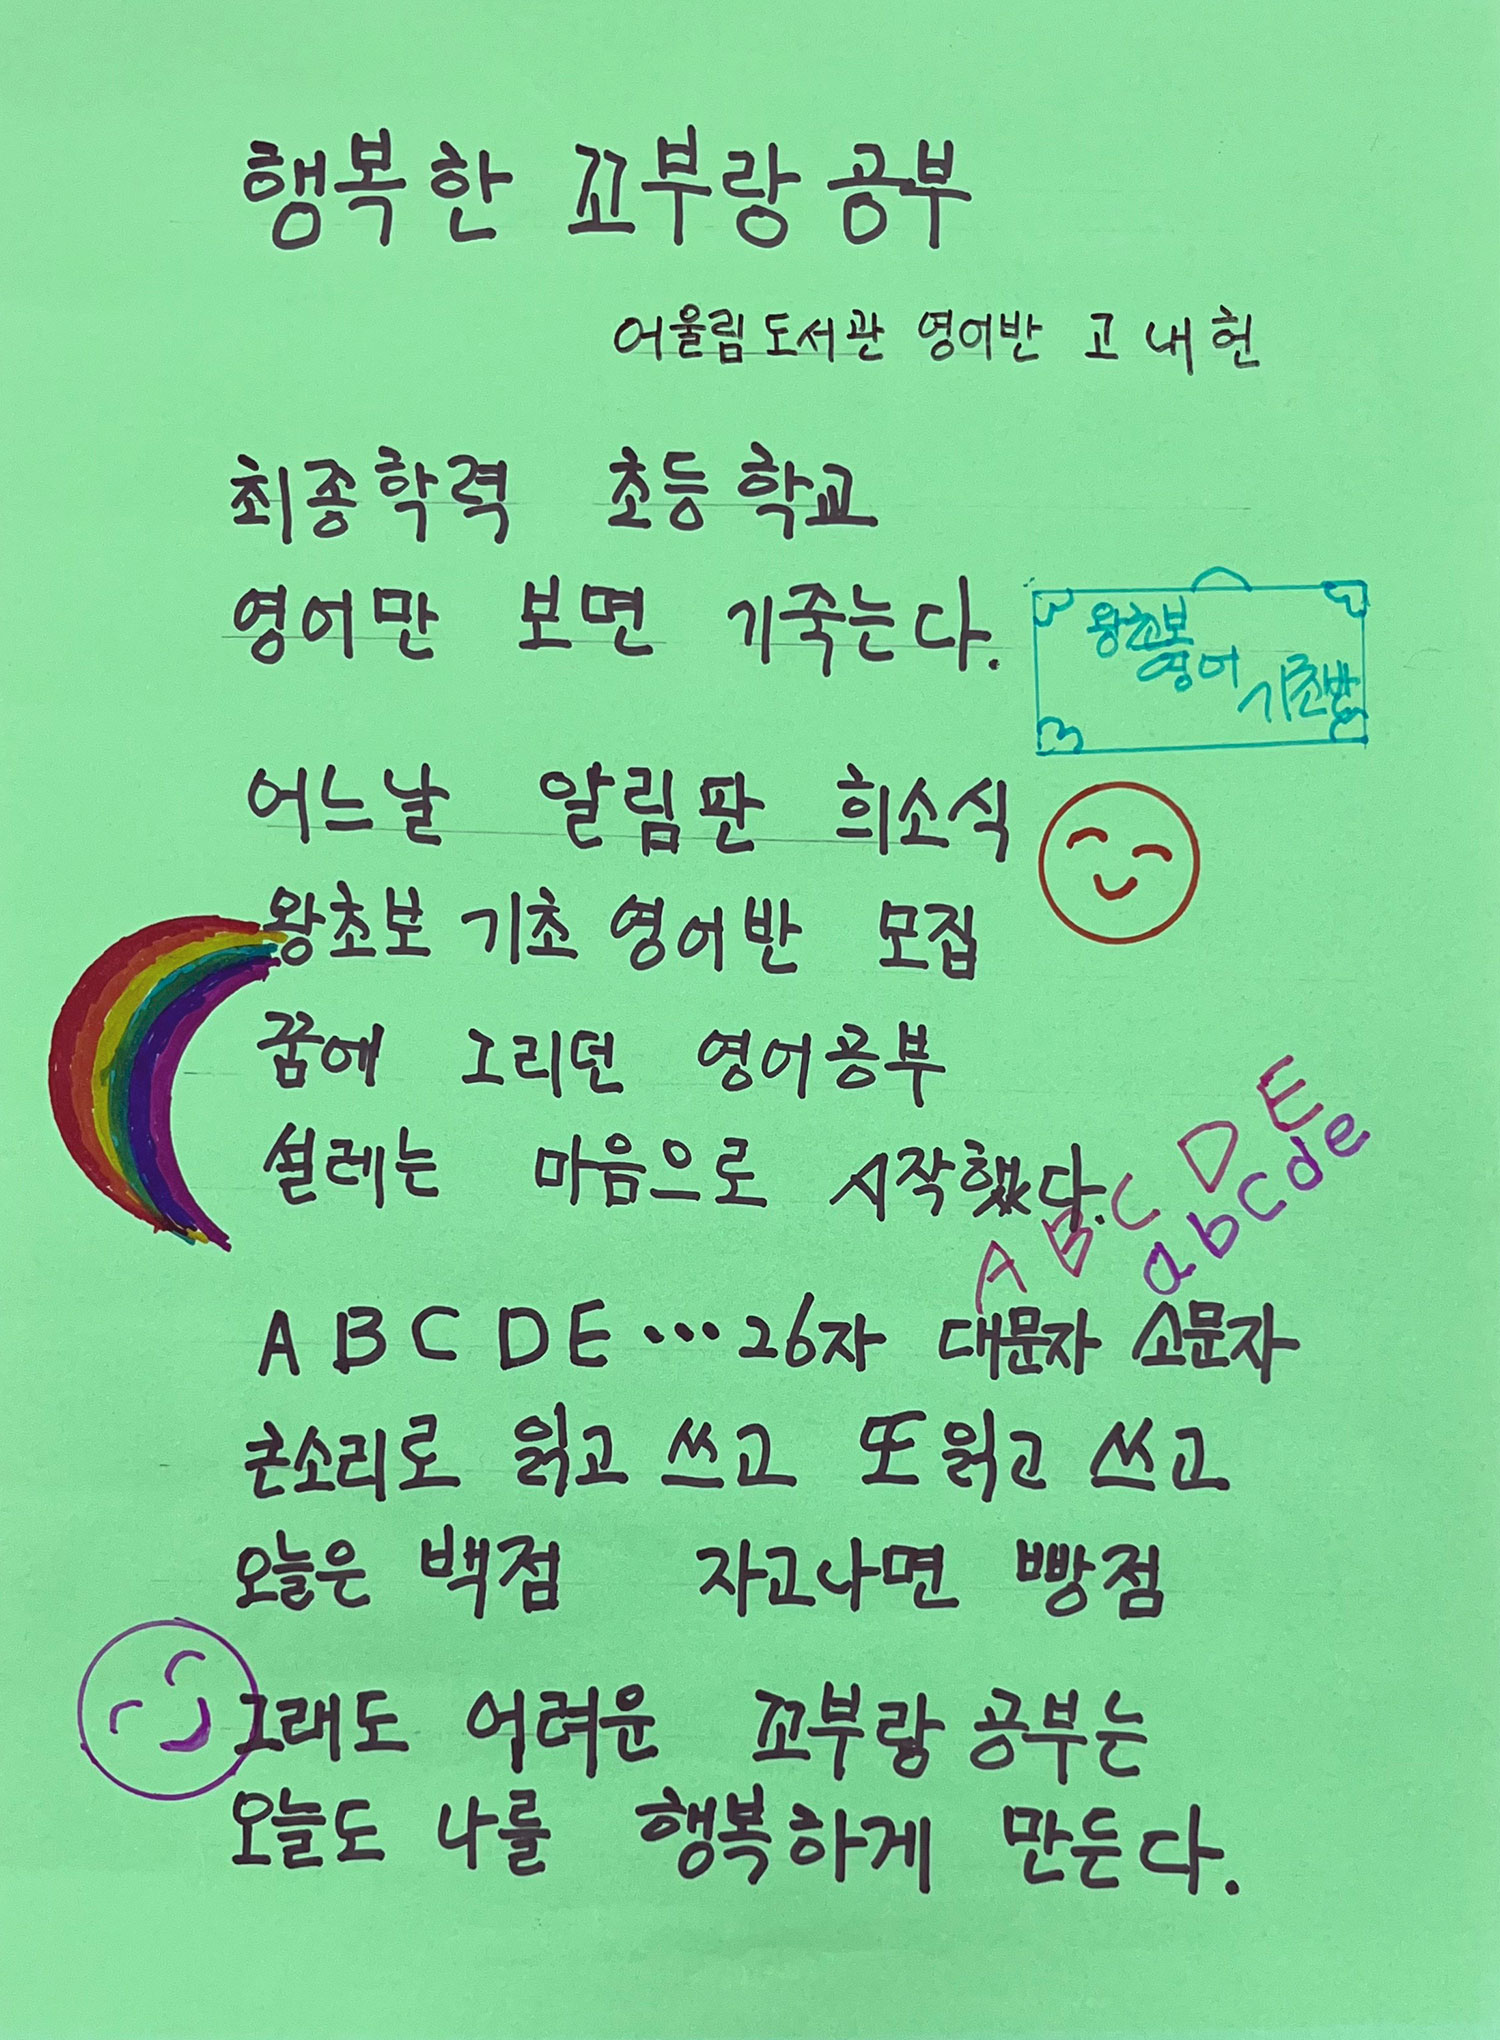 행복한 꼬부랑 공부
어울림도서관 영어반 고내헌
최종학력 초등학교
영어만 보면 기죽는다.
왕초보
영어
기초반
어느날 알림판 희소식
왕초보 기초 영어반 모집
꿈에 그리던 영어공부
설레는 마음으로 시작했다.
A B C D E
a b c d e
A B C D E ··· 26자 대문자 소문자
큰소리로 읽고 쓰고 또 읽고 쓰고
오늘은 백점 자고나면 빵점
그래도 어려운 꼬부랑 공부는
오늘도 나를 행복하게 만든다.